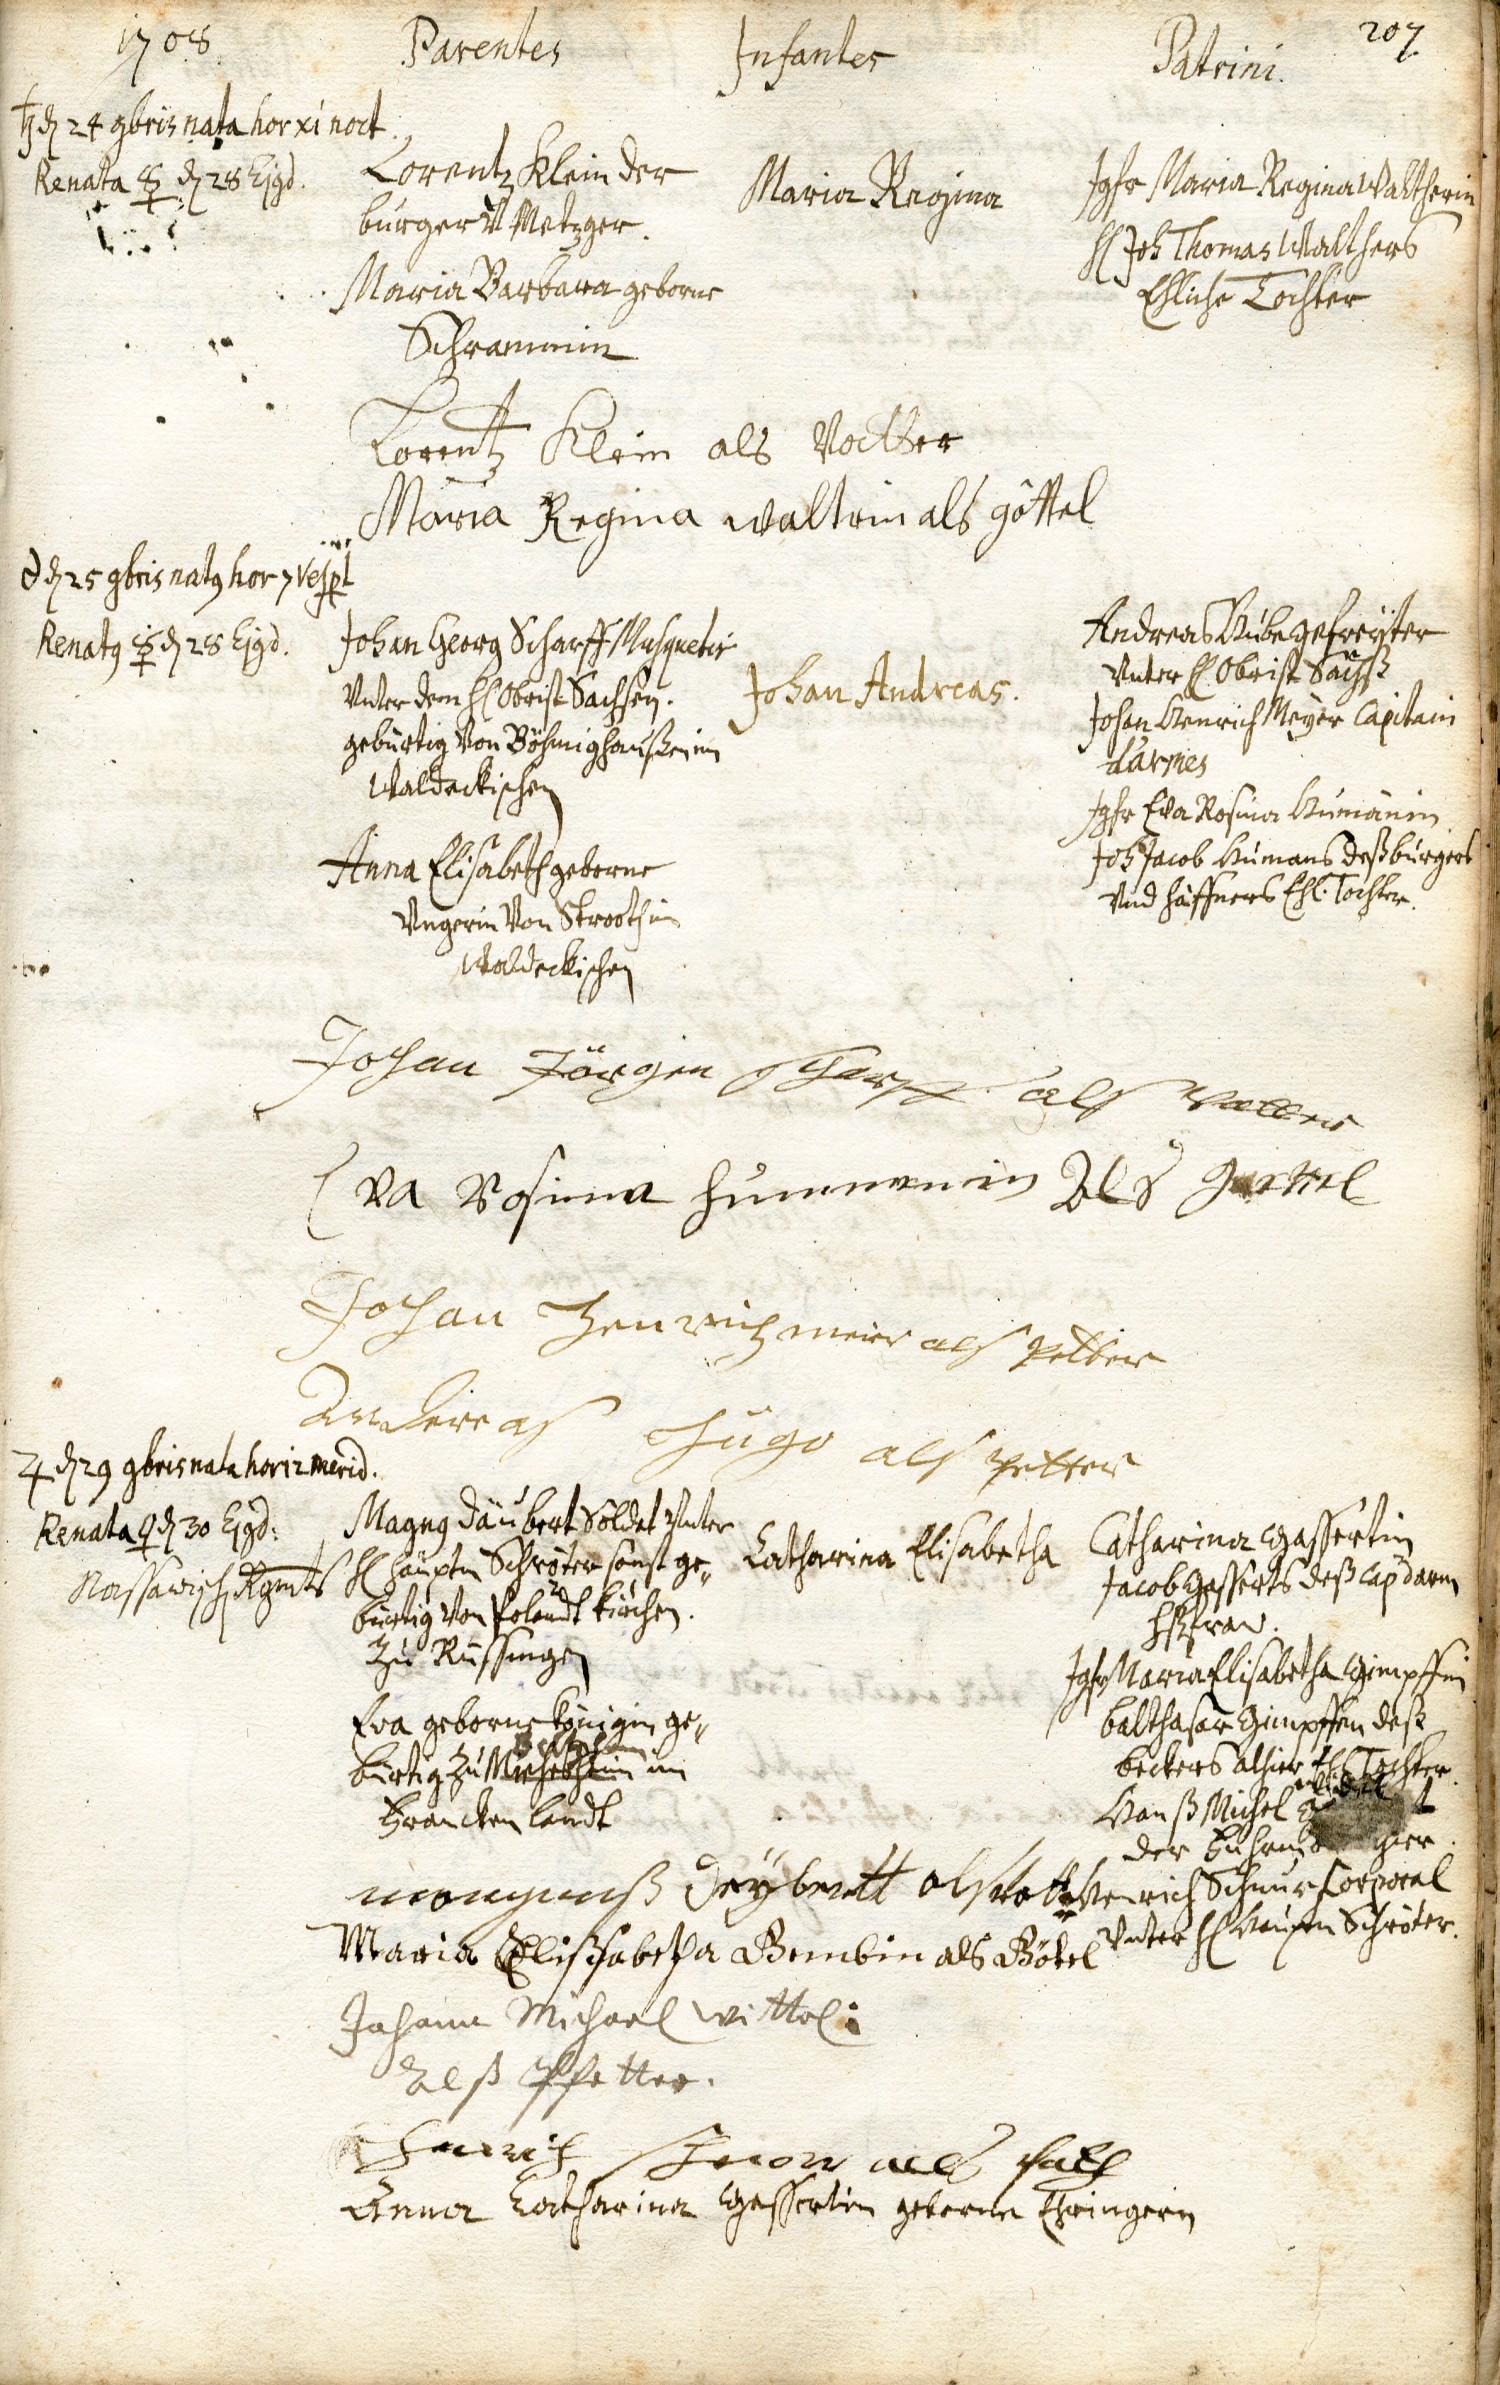 1708. Parentes Infantes Patrini. 207
♄ d 24 9bris nata hor xi noct.
Renata ☿ d 28 Ejsd.
Lorentz Klein der
burger V Metzger.
Maria Barbara geborne
Schrammin
Maria Regina
Jgfr Maria Regina Waltherin
H Joh Thomas Walthers
Ehliche Tochter
Lorentz Klein als Vatter
Maria Regina waltrin als göttel
d 25 9bris natg hor 7 Vespt
Renatg ☿ d 28 Ejsd.
Johan Georg Scharff Musquetir
Vnter dem H Obrist Sachsen.
gebürtig Von Böhmighaußen im
Waldeckischen
Anna Elisabeth geborne
Vngerin Von Strooth im
Waldeckischen
Johan Andreas.
Andreas gefreyter
Vnter H Obrist Sachß
Johan Henrich Meyer Capitain
d'armes
Jgfr Eva Rosina Humänin
Joh Jacob Humans deß burgers
Vnd häffners Ehl. Tochter.
Johan Jörgen scharf als Vatter
Eva Rosinna Hummenin Als
Johan Henrich meier als petter
Andereas Hügo als petter
♃ d 29 9bris nata hor 12 merid.
Renata ♀ d 30 Ejsd:
Nassawisch Rgmts
Magng Däubert Soldat Vnter
H häuptm Schröter sonst ge„
bürtig Von kirchen.
Zu Rüssingen
Eva geborne Königin ge„
bürtig zu im
Francken landt
Catharina Elisabetha
Catharina Gassertin
Jacob Gasserts deß Cap darm
hßfraw.
Jgfr Maria Elisabetha Gimpffin
balthasar Gimpffen deß
beckers alhier Ehl Tochter.
Hanß Michel
der
Henrich Schnur Corporal
Vnter H Haupm Schröter.
Deyberett als
Maria Elißsabetha Bembin als Götel
Johann Michael Wittel:
Alß Pfetter.
Henrich als
Anna Catharina Gassertin geborne Thringerin